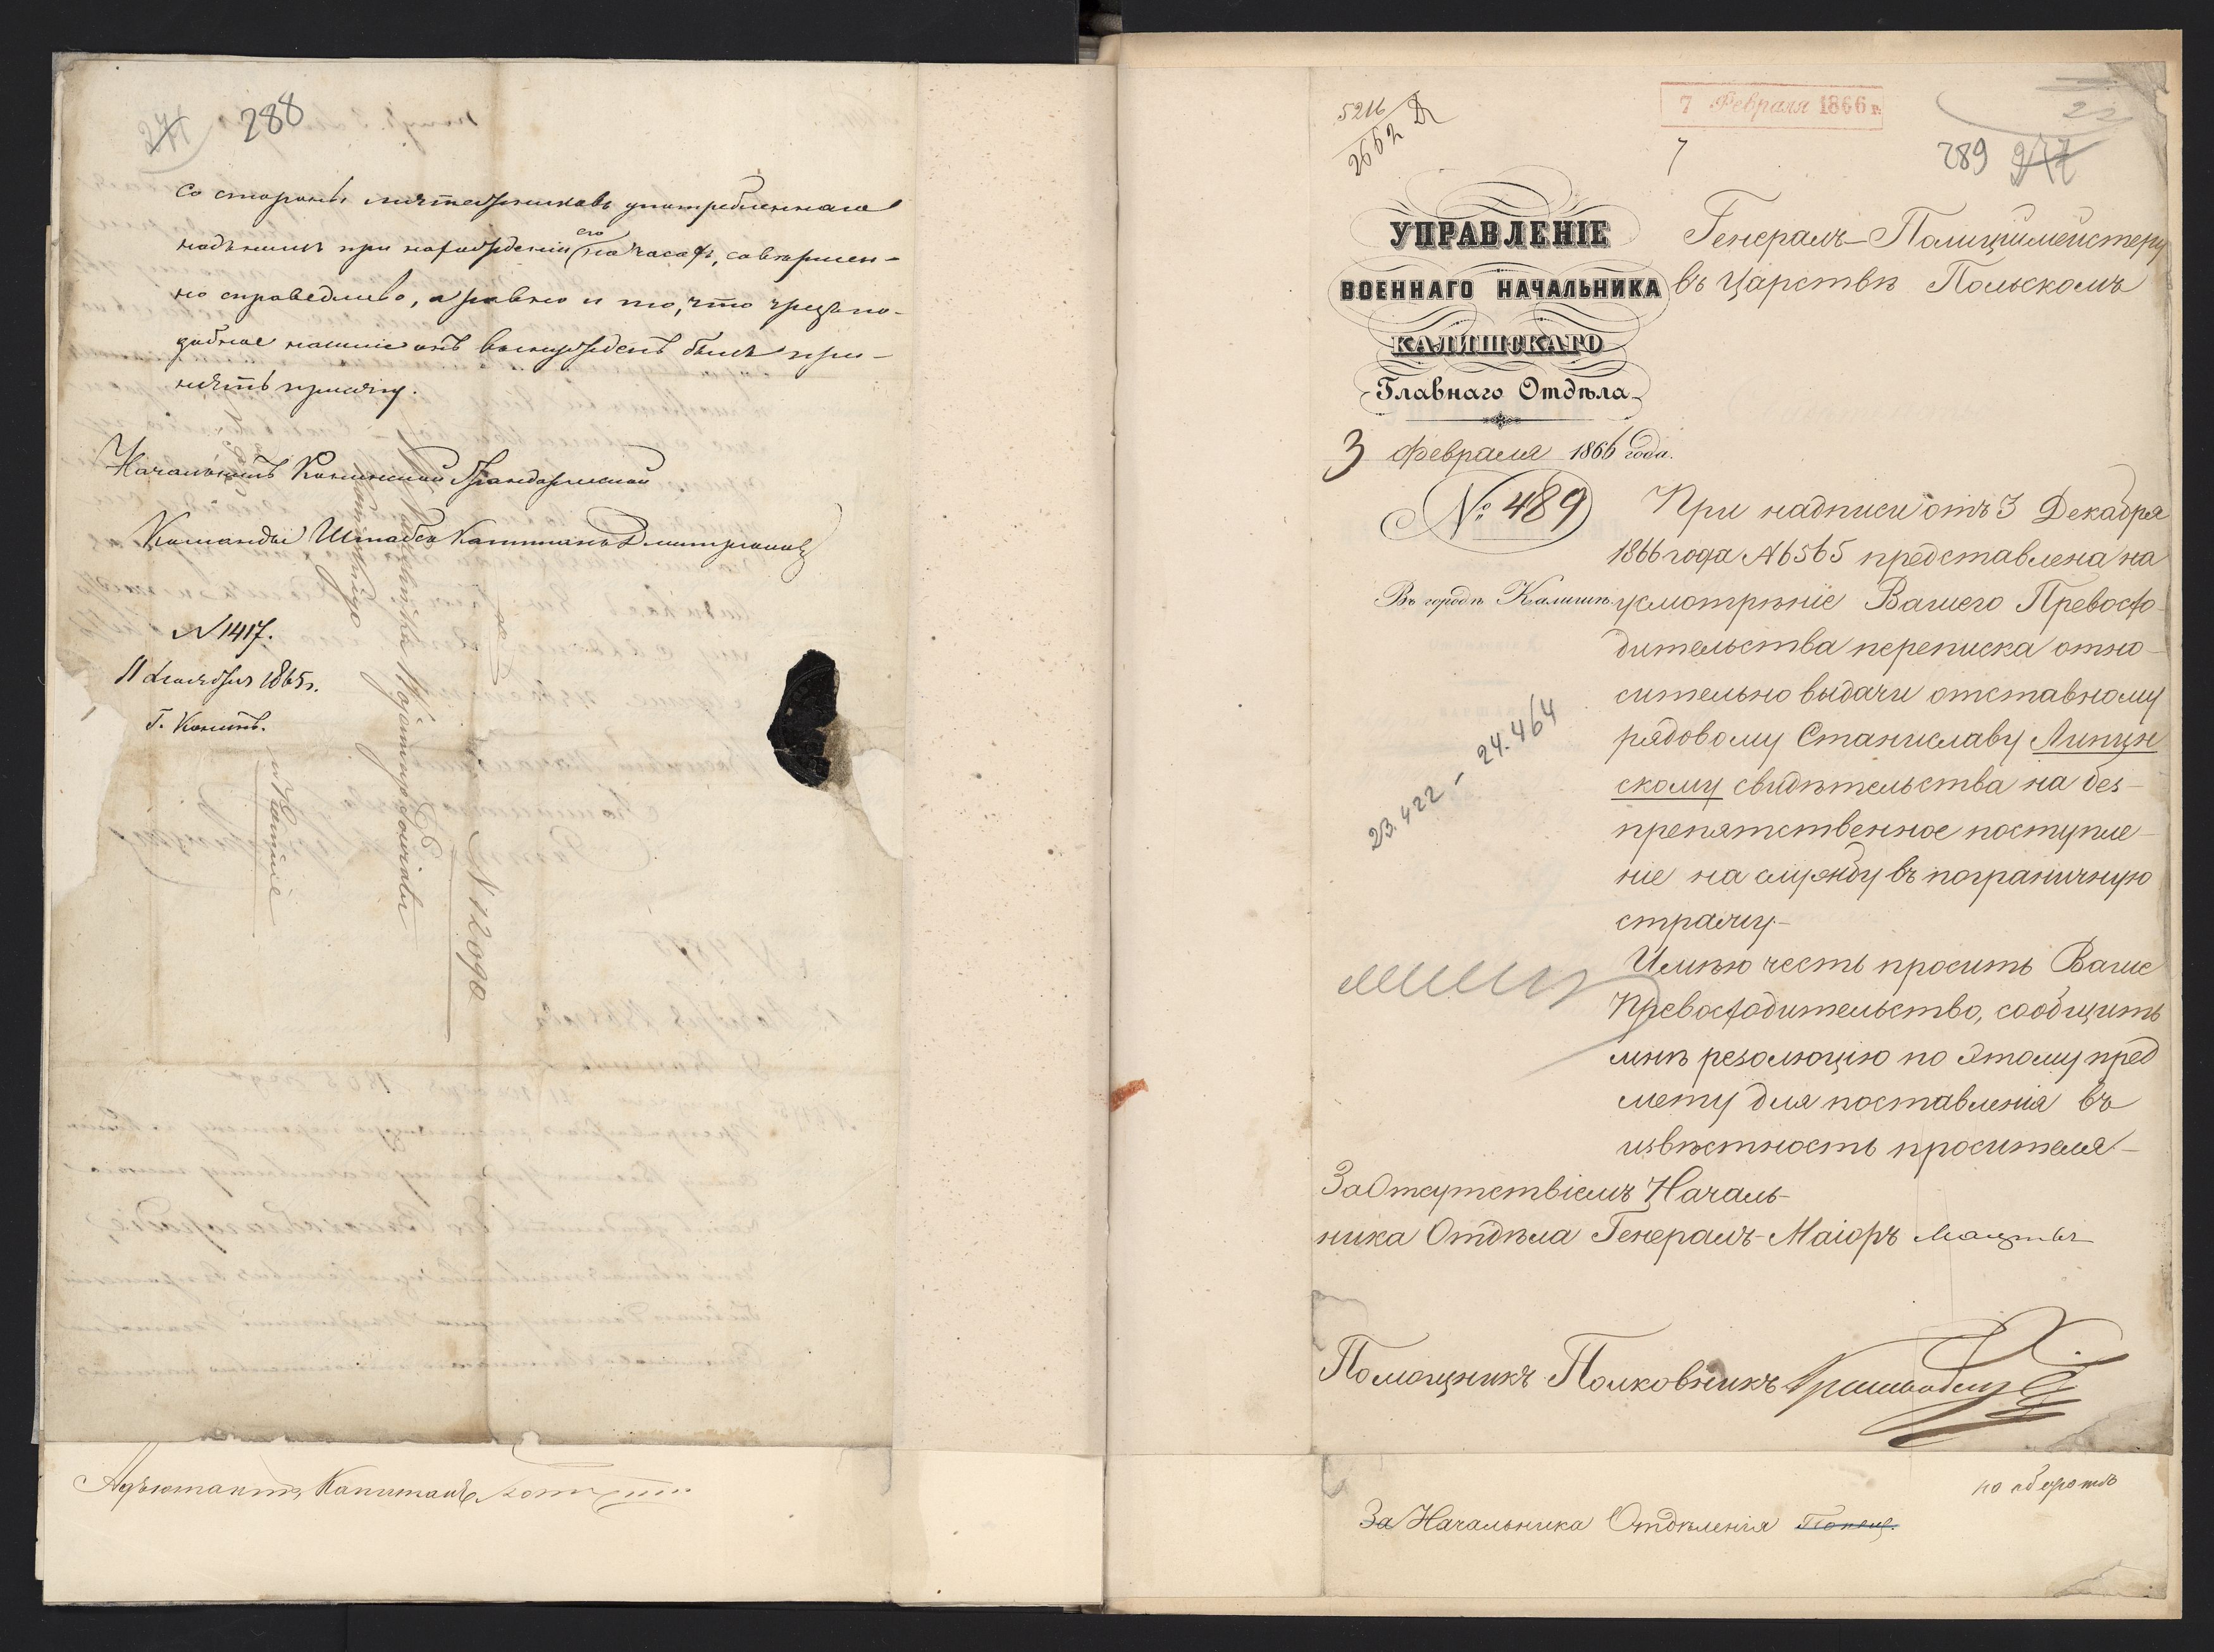 288
со стороны мятежниковъ употребленнаго
надъ нимъ при нахожденіи его на часахъ, совершен-
но справедливо, а равно и то, что чрезъ по-
добное насиліе онъ вынужденъ былъ при-
нять присягу.
Начальникъ Конинской Жандармской
Команды Штабсъ Капитанъ
N 1417.
11 Декабря 1865 г.
Г. Конинъ.
N 12090
Адъютантъ, Капитанъ
5216
2662
7 Февраля 1866 г.
7
22
289
УПРАВЛЕНІЕ
ВОЕННАГО НАЧАЛЬНИКА
КАЛИШСКАГО
Главнаго Отдѣла
3 Февраля 1866 года.
№ 489
Въ городѣ Калишѣ.
23.422 – 24.464
Генералъ-Полицiймейстеру
въ Царствѣ Польскомъ
При надписи отъ 3 Декабря
1866 года N 6565 представлена на
усмотрѣніе Вашего Превосхо-
дительства переписка отно-
сительно выдачи отставному
рядовому Станиславу Липин
скому свидѣтельства на без-
препятственное поступле-
ніе на службу въ пограничную
стражу-
Имѣю честь просить Ваше
Превосходительство, сообщить
мнѣ резолюцію по этому пред
мету для поставленія въ
извѣстность просителя-
За Отсутствіемъ Началь-
ника Отдѣла Генералъ-Маіоръ
Помощникъ Полковникъ
на оборотѣ
За Начальника Отдѣленія